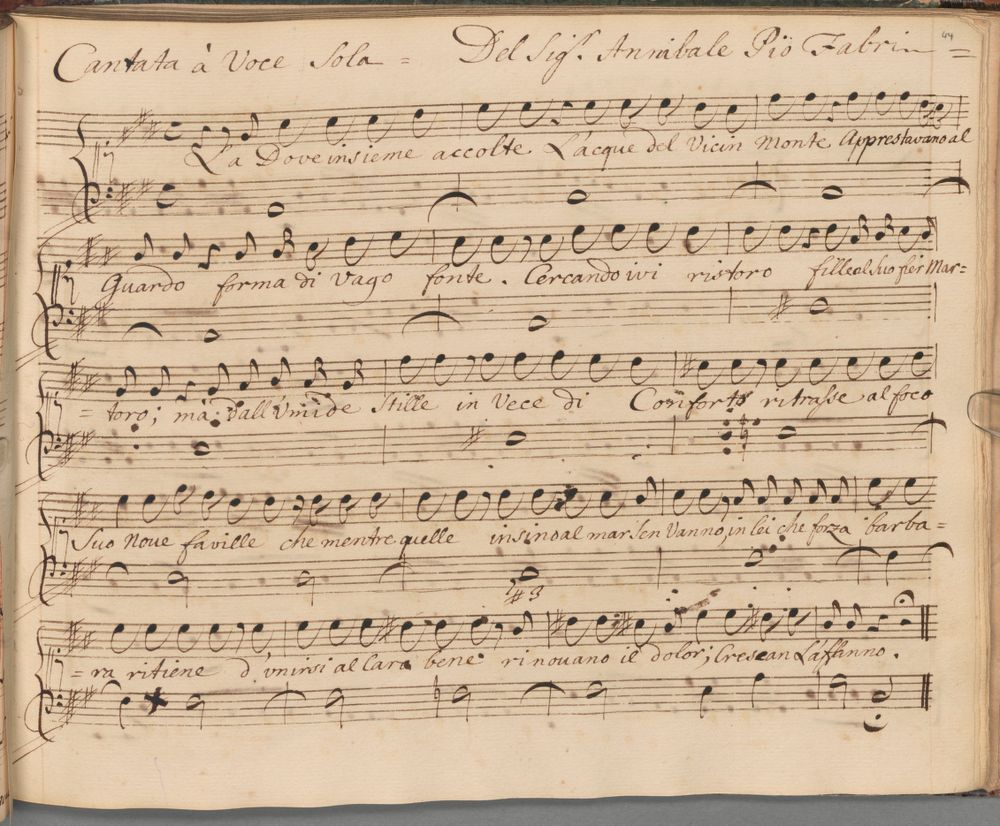 Cantata à Voce Sola = Del Sig.r Annibale Piò Fabrin =
44
La Dove insieme accolte L'acque del Vicin Monte Apprestavano al
Guardo forma di Vago fonte. Cercando ivi ristoro fille al suo fier Mar=
=toro; mà dall'Umide Stille in Vece di Conforto ritrasse al foco
Suo nove faville che mentre quelle insino al mar s'en Vanno, in lei che forza barba=
#3
=ra ritiene d'unirsi al Caro bene rinovano il dolor; Crescan L'affanno.